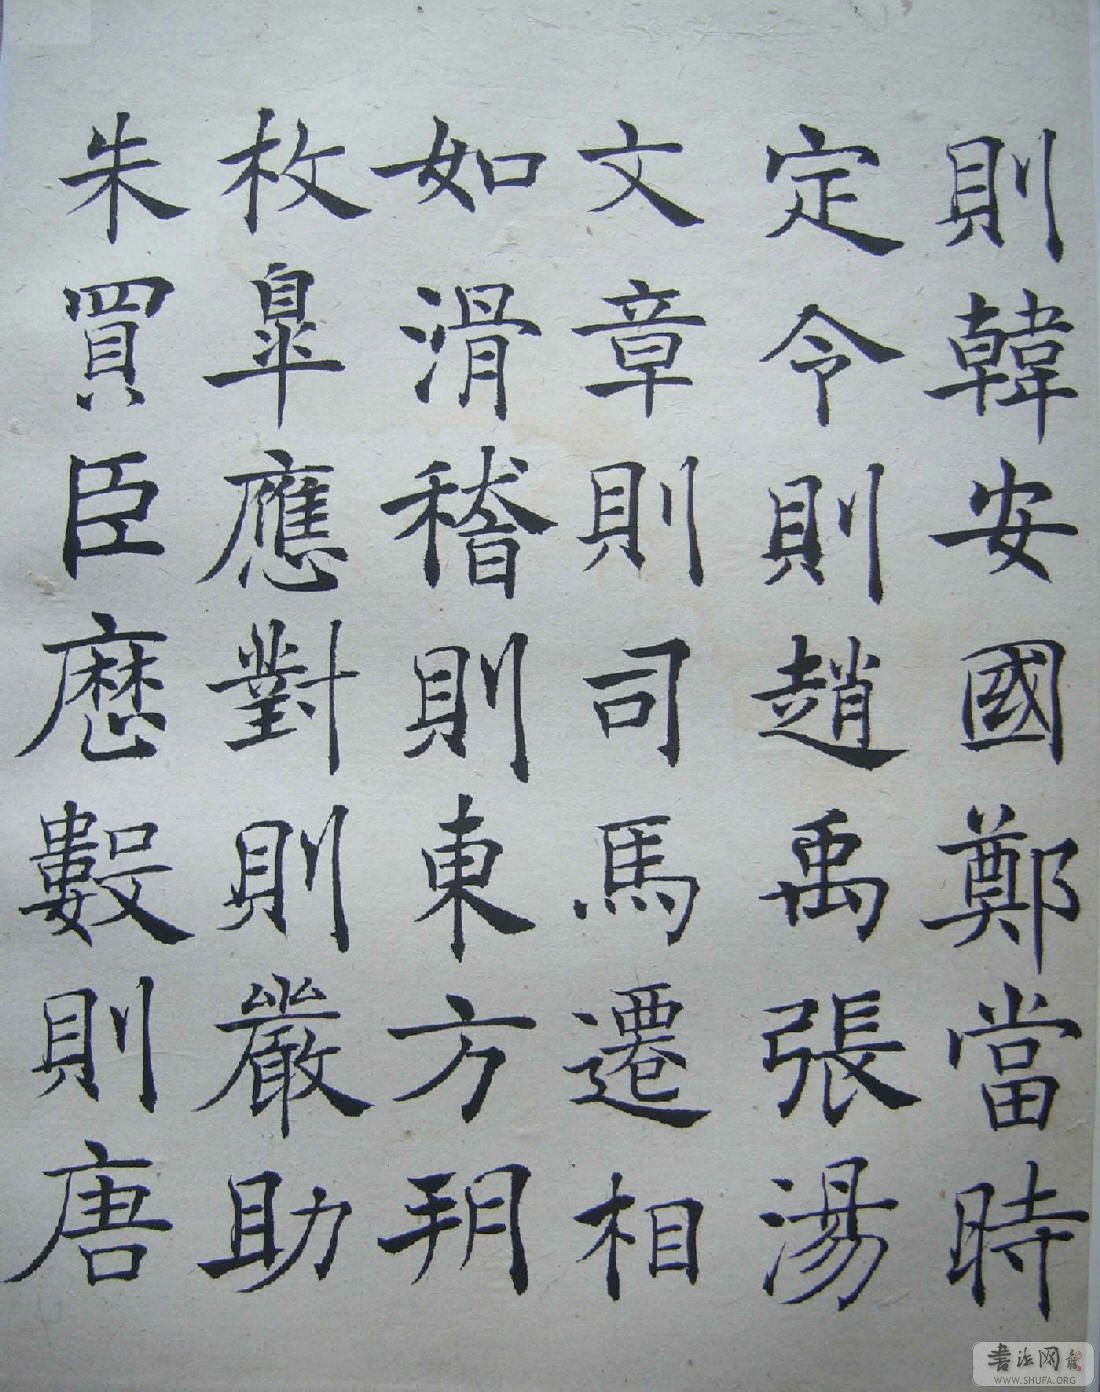 則韓安國鄭當時
定令則趙禹張湯
文章則司馬遷相
如滑稽則東方朔
枚皐應對則嚴助
朱買臣厯數則唐
書法网
WWW.SHUFA.ORG